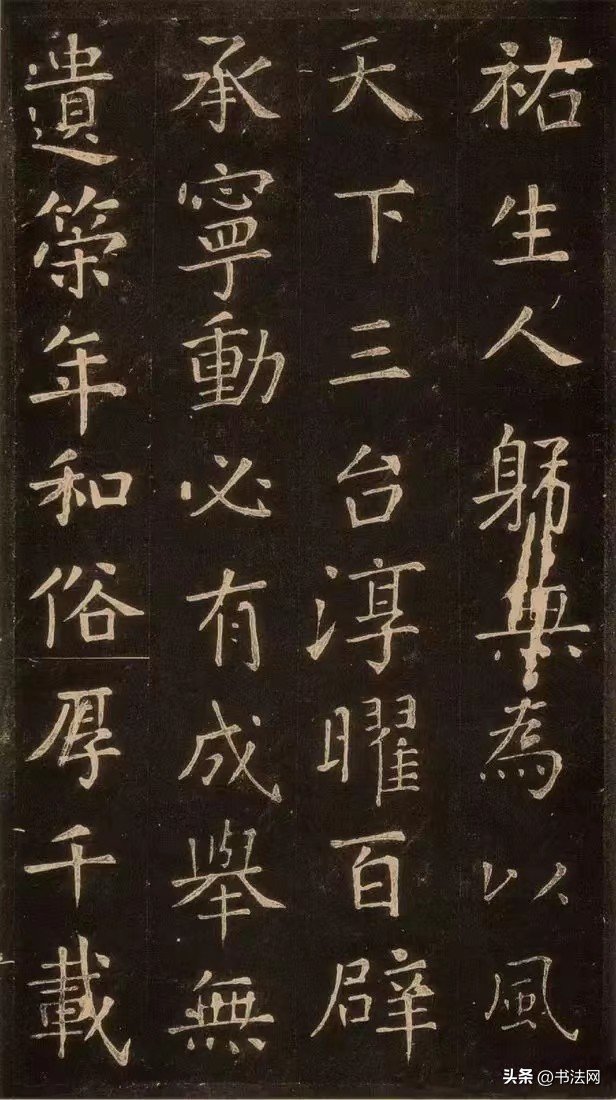 祐生人躬無為以風
天下三台淳曜百辟
承寧動必有成舉無
遺筞年和俗厚千載
头条 @书法网